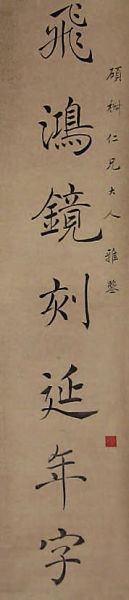 飛鴻鏡刻延年字
碩樹仁兄大人雅鑒